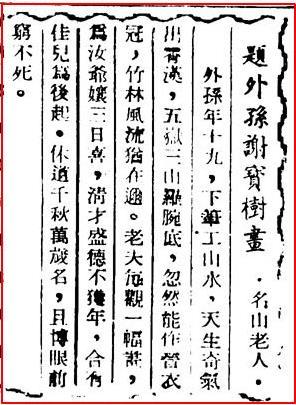 題外孫謝寶樹畫 ·名山老人·
外孫年十九,下筆工山水,天生奇氣
出霄漢,五嶽三山羅腕底,忽然能作晉衣
冠,竹林風流猶在邇。老夫每觀一幅,
爲汝爺孃三日喜,清才盛德不獲年,合有
佳兒爲後起。休道千秋萬歲名,且博眼前
窮不死。